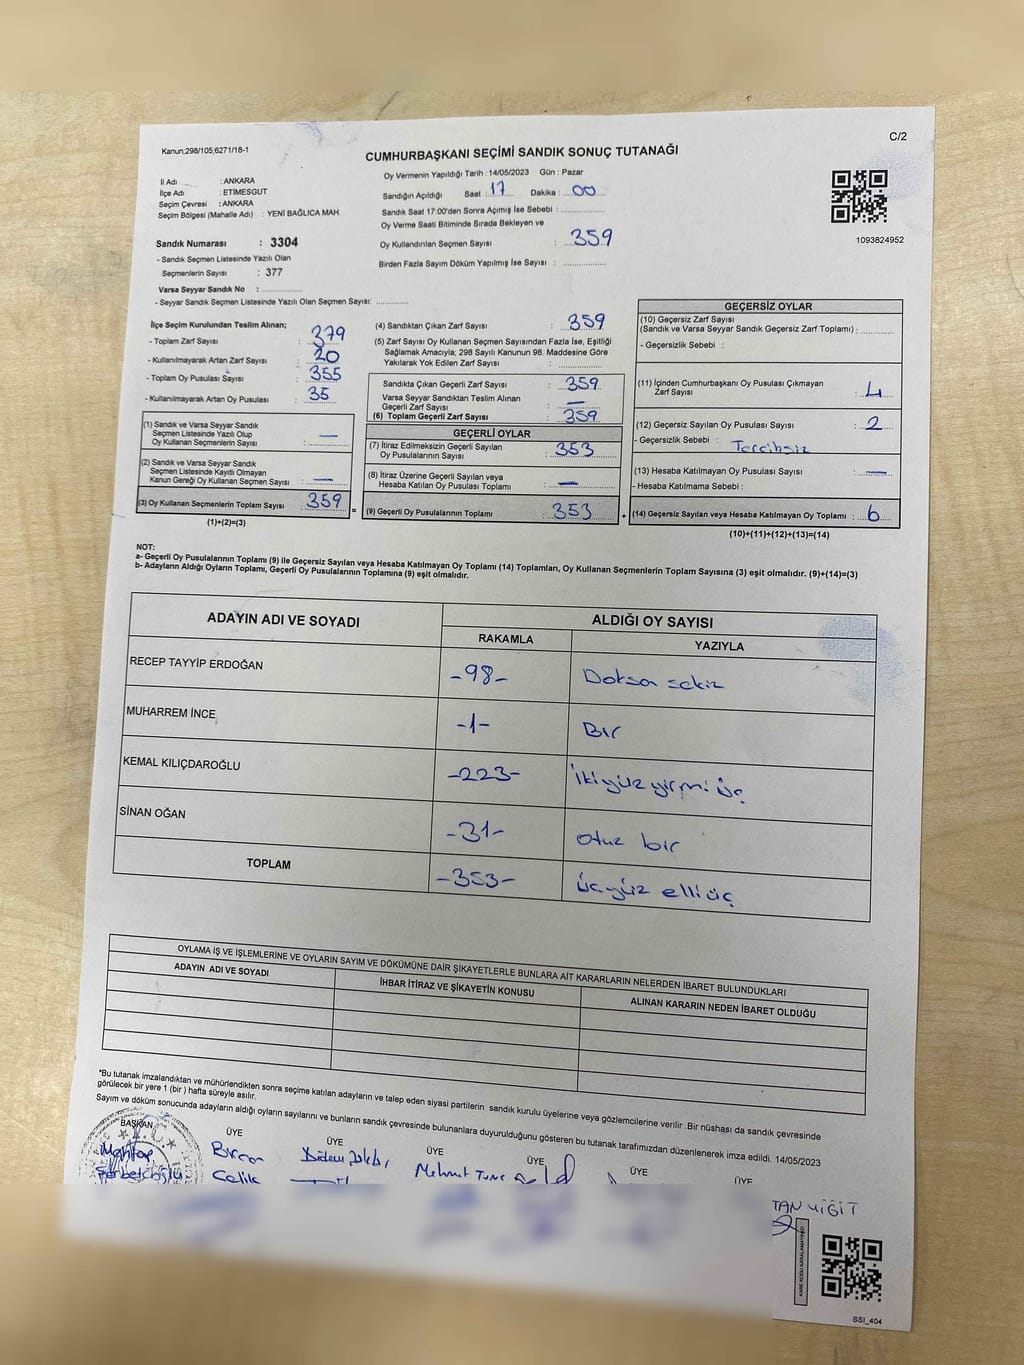 C/2
Kanun;298/105;6271/18-1
CUMHURBAŞKANI SEÇİMİ SANDIK SONUÇ TUTANAĞI
İl Adı : ANKARA
İlçe Adı : ETİMESGUT
Seçim Çevresi : ANKARA
Seçim Bölgesi (Mahalle Adı) : YENİ BAĞLICA MAH.
Sandık Numarası : 3304
- Sandık Seçmen Listesinde Yazılı Olan
Seçmenlerin Sayısı : 377
Varsa Seyyar Sandık No :
- Seyyar Sandık Seçmen Listesinde Yazılı Olan Seçmen Sayısı:
Oy Vermenin Yapıldığı Tarih : 14/05/2023 Gün : Pazar
Sandığın Açıldığı Saat : 17 Dakika : 00
Sandık Saat 17:00'den Sonra Açımış İse Sebebi :
Oy Verme Saati Bitiminde Sırada Bekleyen ve
Oy Kullandırılan Seçmen Sayısı : 359
Birden Fazla Sayım Döküm Yapılmış İse Sayısı :
1093824952
İlçe Seçim Kurulundan Teslim Alınan;
- Toplam Zarf Sayısı : 379
- Kullanılmayarak Artan Zarf Sayısı : 20
- Toplam Oy Pusulası Sayısı : 355
- Kullanılmayarak Artan Oy Pusulası : 35
(1) Sandık ve Varsa Seyyar Sandık
Seçmen Listesinde Yazılı Olup
Oy Kullanan Seçmenlerin Sayısı : —
(2) Sandık ve Varsa Seyyar Sandık
Seçmen Listesinde Kayıtlı Olmayan
Kanun Gereği Oy Kullanan Seçmen Sayısı : —
(3) Oy Kullanan Seçmenlerin Toplam Sayısı : 359
(1)+(2)=(3)
(4) Sandıktan Çıkan Zarf Sayısı : 359
(5) Zarf Sayısı Oy Kullanan Seçmen Sayısından Fazla İse, Eşitliği
Sağlamak Amacıyla; 298 Sayılı Kanunun 98. Maddesine Göre
Yakılarak Yok Edilen Zarf Sayısı :
Sandıkta Çıkan Geçerli Zarf Sayısı : 359
Varsa Seyyar Sandıktan Teslim Alınan
Geçerli Zarf Sayısı : —
(6) Toplam Geçerli Zarf Sayısı : 359
GEÇERLİ OYLAR
(7) İtiraz Edilmeksizin Geçerli Sayılan
Oy Pusulalarının Sayısı : 353
(8) İtiraz Üzerine Geçerli Sayılan veya
Hesaba Katılan Oy Pusulası Toplamı : —
(9) Geçerli Oy Pusulalarının Toplamı : 353
GEÇERSİZ OYLAR
(10) Geçersiz Zarf Sayısı
(Sandık ve Varsa Seyyar Sandık Geçersiz Zarf Toplamı) :
- Geçersizlik Sebebi :
(11) İçinden Cumhurbaşkanı Oy Pusulası Çıkmayan
Zarf Sayısı : 4
(12) Geçersiz Sayılan Oy Pusulası Sayısı : 2
- Geçersizlik Sebebi : Tercihsiz
(13) Hesaba Katılmayan Oy Pusulası Sayısı : —
- Hesaba Katılmama Sebebi :
(14) Geçersiz Sayılan veya Hesaba Katılmayan Oy Toplamı : 6
(10)+(11)+(12)+(13)=(14)
NOT:
a- Geçerli Oy Pusulalarının Toplamı (9) ile Geçersiz Sayılan veya Hesaba Katılmayan Oy Toplamı (14) Toplamları, Oy Kullanan Seçmenlerin Toplam Sayısına (3) eşit olmalıdır. (9)+(14)=(3)
b- Adayların Aldığı Oyların Toplamı, Geçerli Oy Pusulalarının Toplamına (9) eşit olmalıdır.
ADAYIN ADI VE SOYADI ALDIĞI OY SAYISI
RAKAMLA YAZIYLA
RECEP TAYYİP ERDOĞAN -98- Doksan sekiz
MUHARREM İNCE -1- Bir
KEMAL KILIÇDAROĞLU -223- İkiyüz yirmi üç
SİNAN OĞAN -31- Otuz bir
TOPLAM -353- üçyüz elli üç
OYLAMA İŞ VE İŞLEMLERİNE VE OYLARIN SAYIM VE DÖKÜMÜNE DAİR ŞİKAYETLERLE BUNLARA AİT KARARLARIN NELERDEN İBARET BULUNDUKLARI
ADAYIN ADI VE SOYADI İHBAR İTİRAZ VE ŞİKAYETİN KONUSU ALINAN KARARIN NEDEN İBARET OLDUĞU
*Bu tutanak imzalandıktan ve mühürlendikten sonra seçime katılan adayların ve talep eden siyasi partilerin sandık kurulu üyelerine veya gözlemcilerine verilir .Bir nüshası da sandık çevresinde
görülecek bir yere 1 (bir ) hafta süreyle asılır.
Sayım ve döküm sonucunda adayların aldığı oyların sayılarını ve bunların sandık çevresinde bulunanlara duyurulduğunu gösteren bu tutanak tarafımızdan düzenlenerek imza edildi. 14/05/2023
BAŞKAN ÜYE ÜYE ÜYE ÜYE ÜYE ÜYE
Mehmet Tunç
Çelik
YİĞİT
KARE KODU KARALAMAYINIZ!
SSI_404